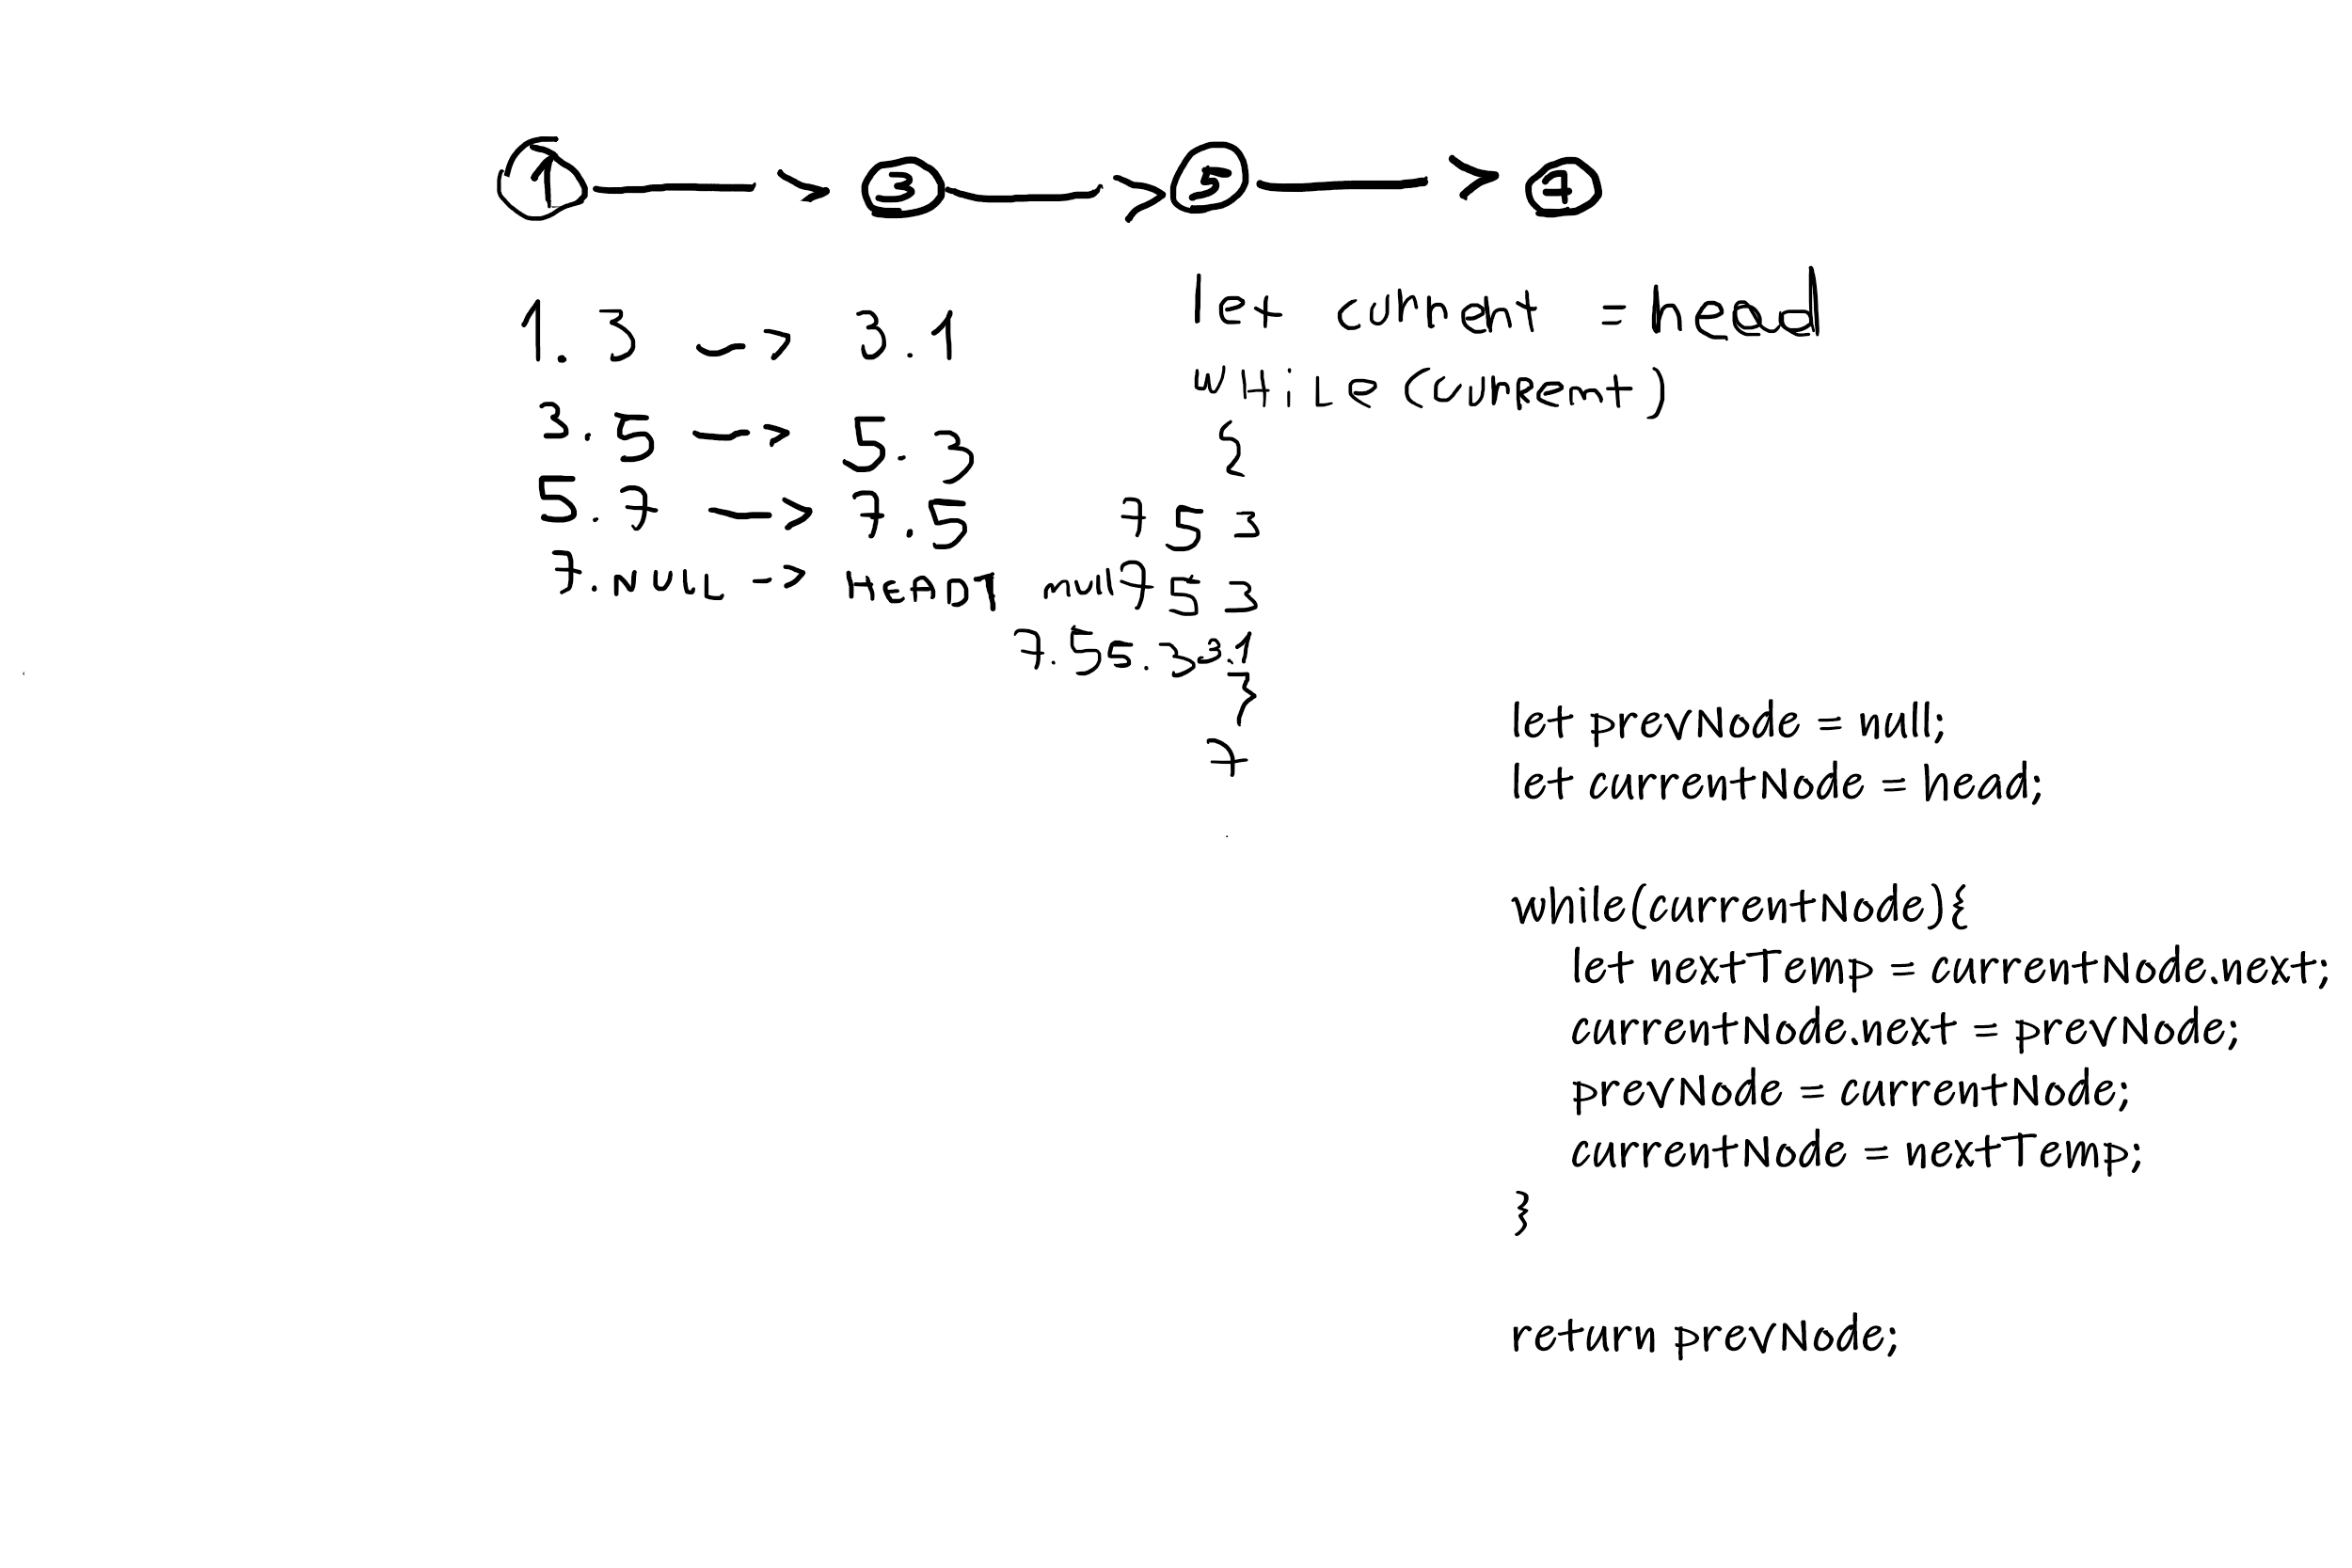 1 3 5 7
1. 3 -> 3.1
3. 5 -> 5. 3
5. 7 -> 7. 5
7. NULL -> HEAD
let current = head
WHiLe (CURRent)
{
7 5 3
null 7 5 3
7.5 5.3 3.1
}
7
let prevNode = null;
let currentNode = head;
while(currentNode){
let nextTemp = currentNode.next;
currentNode.next = prevNode;
prevNode = currentNode;
currentNode = nextTemp;
}
return prevNode;